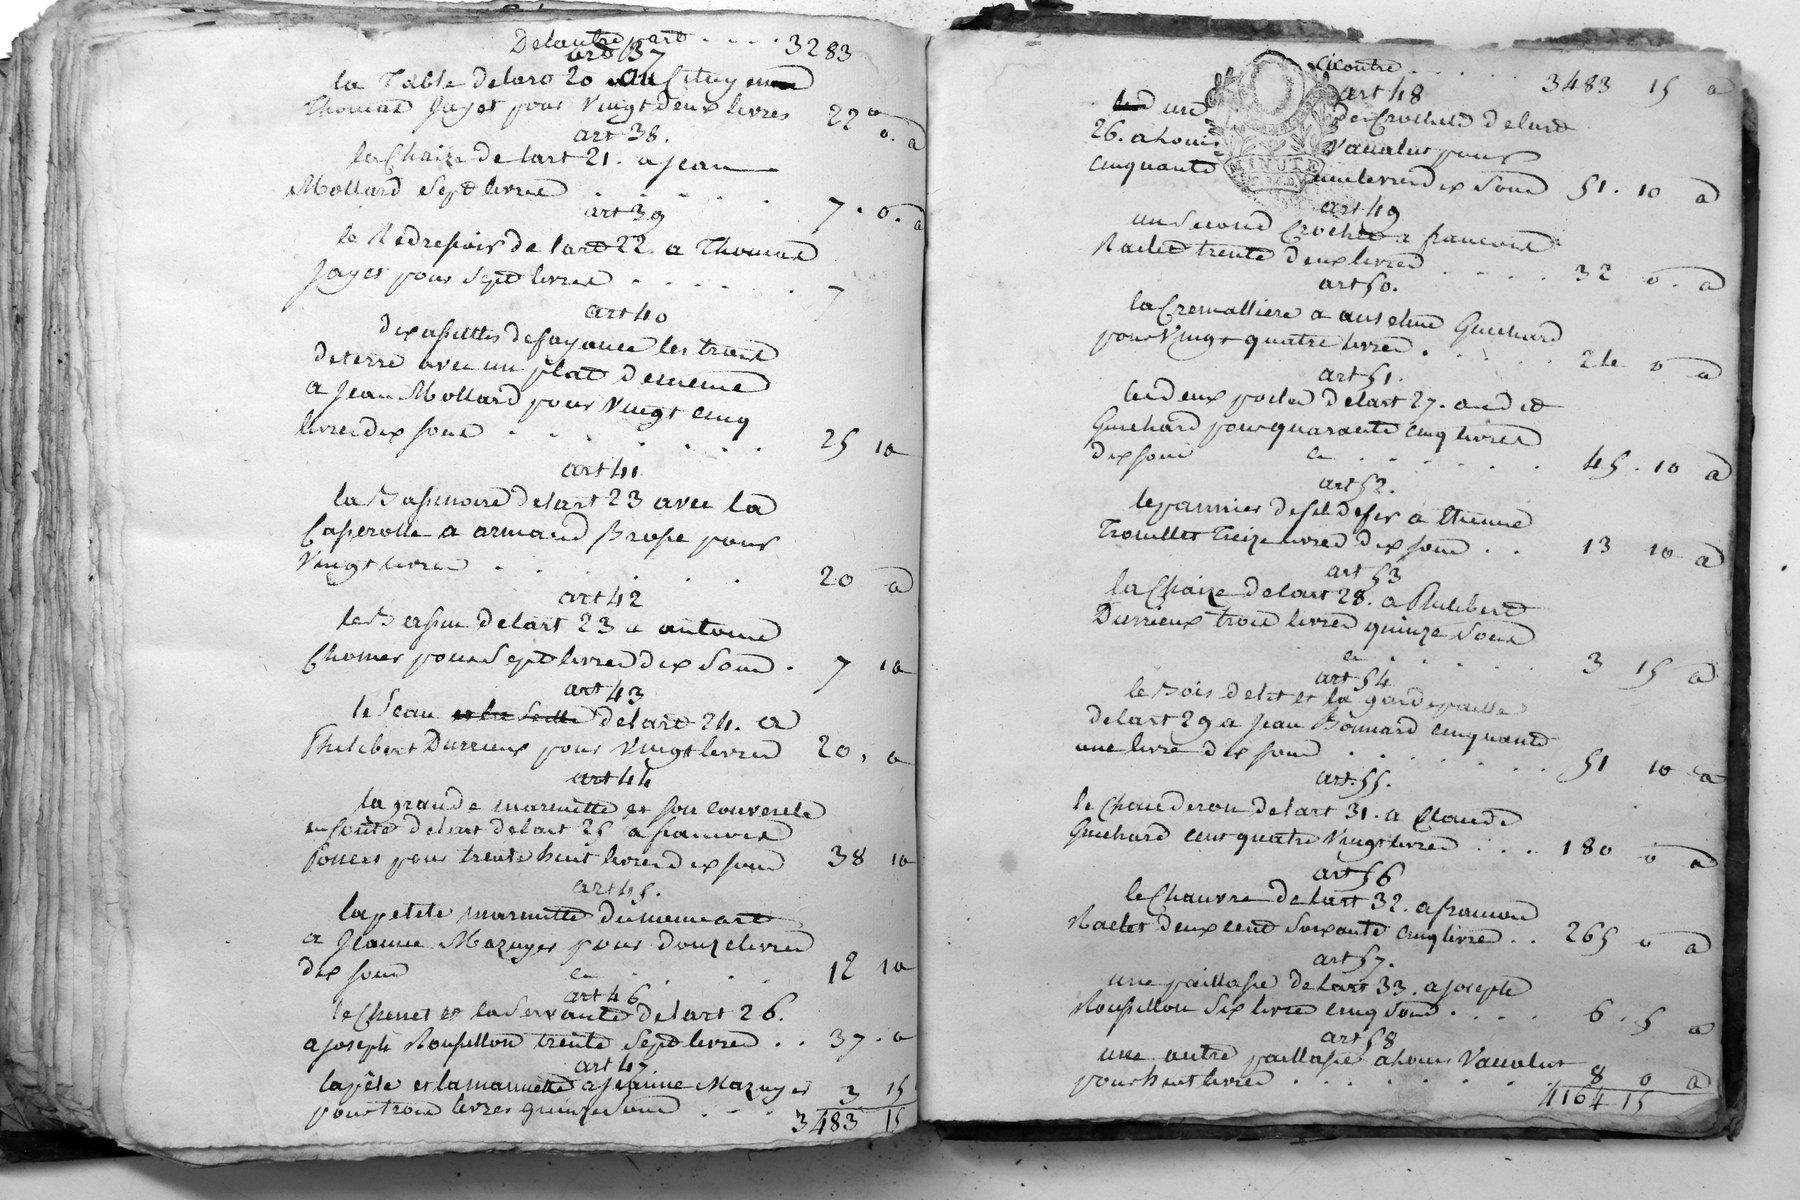 De lautre part . . . . 3283
art 37
la Table de lart 20 au Cituyen
Thomas Jayet pour Vingt deux livres 22 0. a
art 38.
la Chaize de lart 21. a jean
Mollard Sept livres . . . . 7. 0. a
art 39
le Redressoir de lart 22. a Thomas
Jayet pour Sept livres . . . . . . 7
art 40
dix assiettes de fayance les trois
de terre avec un plat de meme
a jean Mollard pour Vingt cinq
livres dix sous . . . . . . . 25 10
art 41
la Bassinoire de lart 23 avec la
Casserolle a armand Brosse pour
Vingt livres . . . . . . 20 a
art 42
le Bassin de lart 23 a antoine
Chomer pour Sept livres dix Sous . 7 10
art 43
le Seau et la Seille de lart 24. a
Philibert Durrieux pour Vingt livres 20, a
art 44
la grande marmitte et son couvercle
en fonte de lart de lart 25 a francois
Poners pour trente huit livres dix sous 38 10
art 45.
la petite marmitte du meme art
a Jeanne Mazuyer pour douze livres
dix sous ci . . . 12 10
art 46
le Chenet et la Servante de lart 26.
a joseph Roussillon trente Sept livres . . 37. a
art 47
la pêle et la manuette a jeanne Mazuyer 3 15
pour trois livres quinze Sous . . . .
3483 15
Cicontre . . . . . 3483 15 a
art 48
un des Crochets de lart
26. a louis Vauolut pour
cinquante une livres dix Sous 51. 10 a
MINUTE
art 49
un Second Crochet a francois
Raclet trente deux livres . . . . . 32 0. a
art 50.
la Cremalliere a anselme Guichard
pour Vingt quatre livres . . . . . 24 0 a
art 51.
les deux poiles de lart 27. audit
Guichard pour quarante cinq livres
dix sous ci . . . . . . 45. 10 a
art 52.
le pannier de fil de fer a Etienne
Trouillet Treize livres dix sous . . 13 10 a
art 53
la Chaize de lart 28. a Philibert
Durrieux trois livres quinze Sous
ci . . . . . 3 15 a
art 54
le Bois de lit et la garde paille
de lart 29 a jean Bonnard cinquante
une livre dix sous . . . . . . . 51 10 a
art. 55.
le Chauderon de lart 31. a Claude
Guichard cent quatre Vingt livres . . . 180 0 a
art 56
le Chanvre de lart 32. a francois
Raclet deux cent Soixante cinq livres . . 265 0 a
art 57.
une paillasse de lart 33. a joseph
Roussillon Six livres cinq Sous . . . . 6. 5 a
art 58
une autre paillasse a louis Vauolut
pour huit livres . . . . . . . . 8 0 a
4164 15